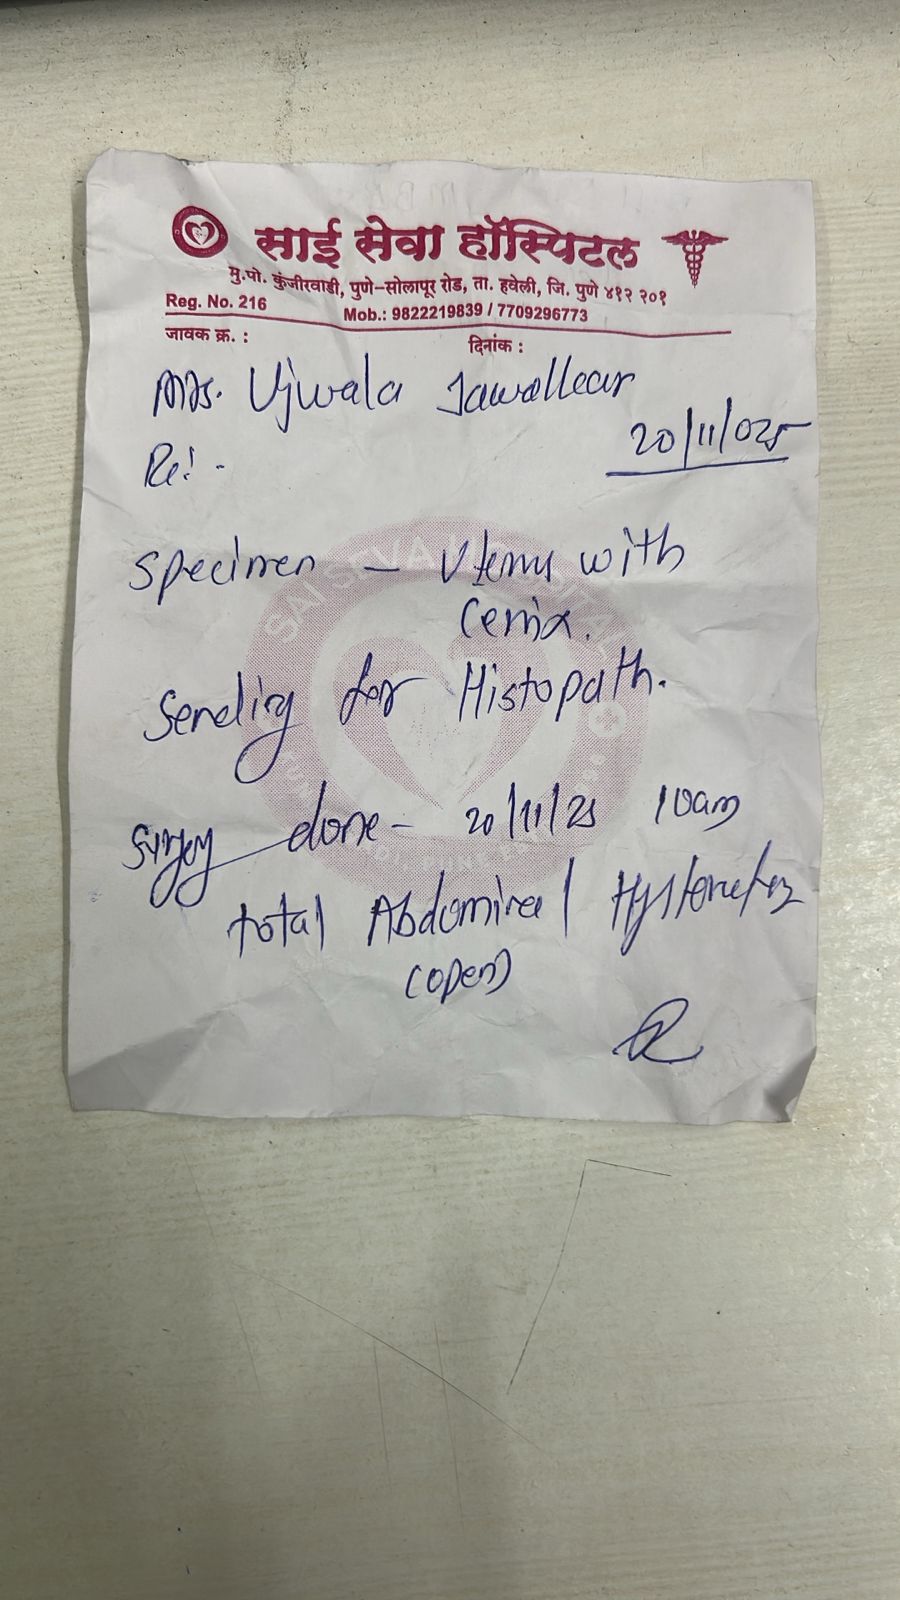 साई सेवा हॉस्पिटल
मु.पो. कुंजीरवाडी, पुणे–सोलापूर रोड, ता. हवेली, जि. पुणे ४१२ २०१
Reg. No. 216 Mob.: 9822219839 / 7709296773
जावक क्र. : दिनांक :
Mrs. Ujwala
20/11/025
Re: -
Specimen – Uterus with
Cervix.
Sending for Histopath.
Surgery done – 20/11/25 10am
Total Abdominal Hysterectomy
(open)
SAI SEVA HOSPITAL